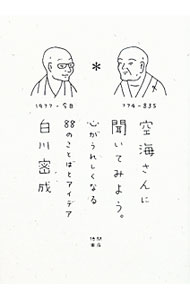 ＊
1977-今日
774-835
空海さんに
聞いてみよう。
心がうれしくなる
88のことばとアイデア
白川密成
徳間
書店